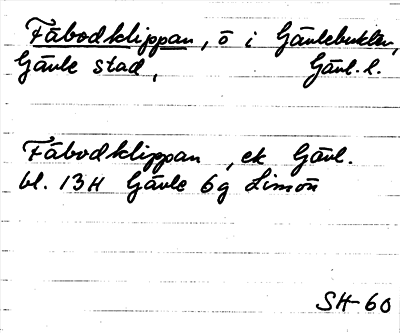 Fäbodklippan, ö i Gävlebukten,
Gävle stad, Gävl. l.
Fäbodklippan, ek Gävl.
bl. 13H Gävle 6g Limön
SH-60